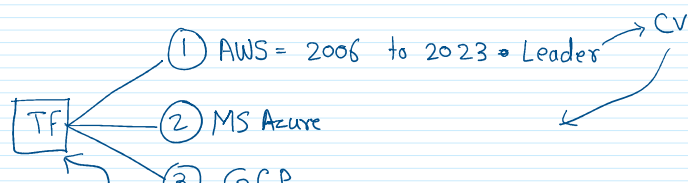 ① AWS = 2006 to 2023 • Leader CV
TF ② MS Azure
③ GCP